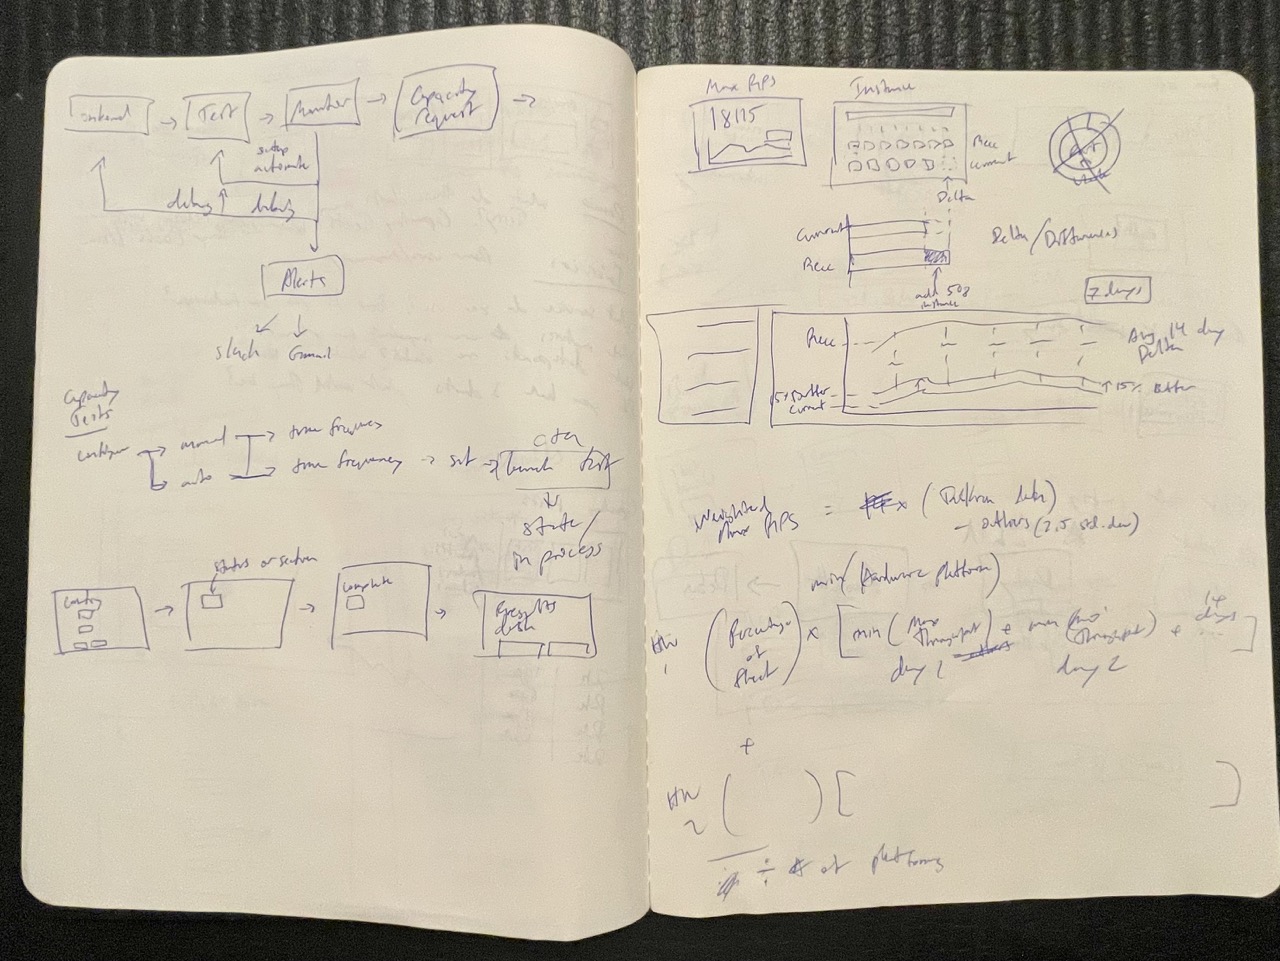 onboard
Test
Monitor
Capacity
request
setup
automate
debug
debug
Alerts
Slack
Gmail
Capacity
Tests
configure
manual
time frequency
auto
time frequency
set
CTA
launch test
state
in process
status or section
config
complete
Results
dash
Max RPS
18115
Instance
Recc
Current
Delta
Current
Recc
Delta/Differences
add 508
instance
7 days
Recc
Avg 14 day
Delta
15% Buffer
Current
15% Buffer
Weighted
Max RPS
=
x
- outliers (2.5 std. dev)
min (Hardware platform)
HW
1
(Percentage
of
fleet)
x
[min (Max
throughput)
+
throughput)
+
14
days
...
]
day 1
day 2
+
HW
2
( ) [ ]
÷ # of platforms